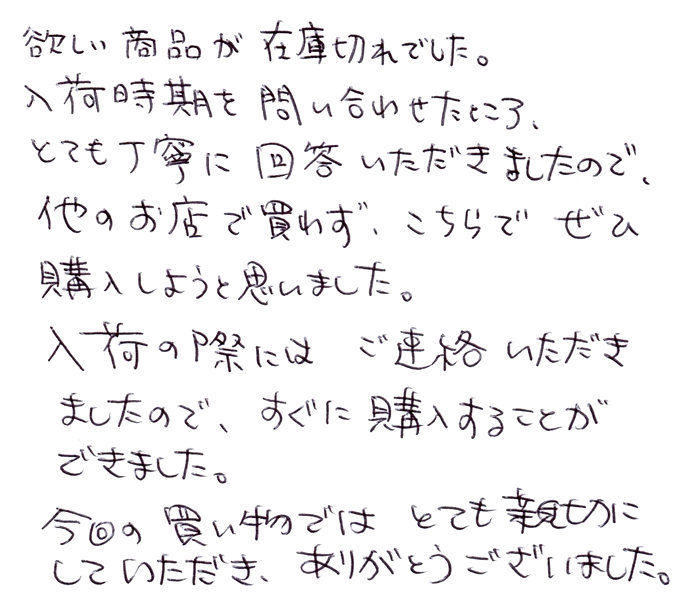 欲しい商品が在庫切れでした。
入荷時期を問い合わせたところ、
とても丁寧に回答いただきましたので、
他のお店で買わず、こちらでぜひ
購入しようと思いました。
入荷の際にはご連絡いただき
ましたので、すぐに購入することが
できました。
今回の買い物ではとても親切に
していただき、ありがとうございました。